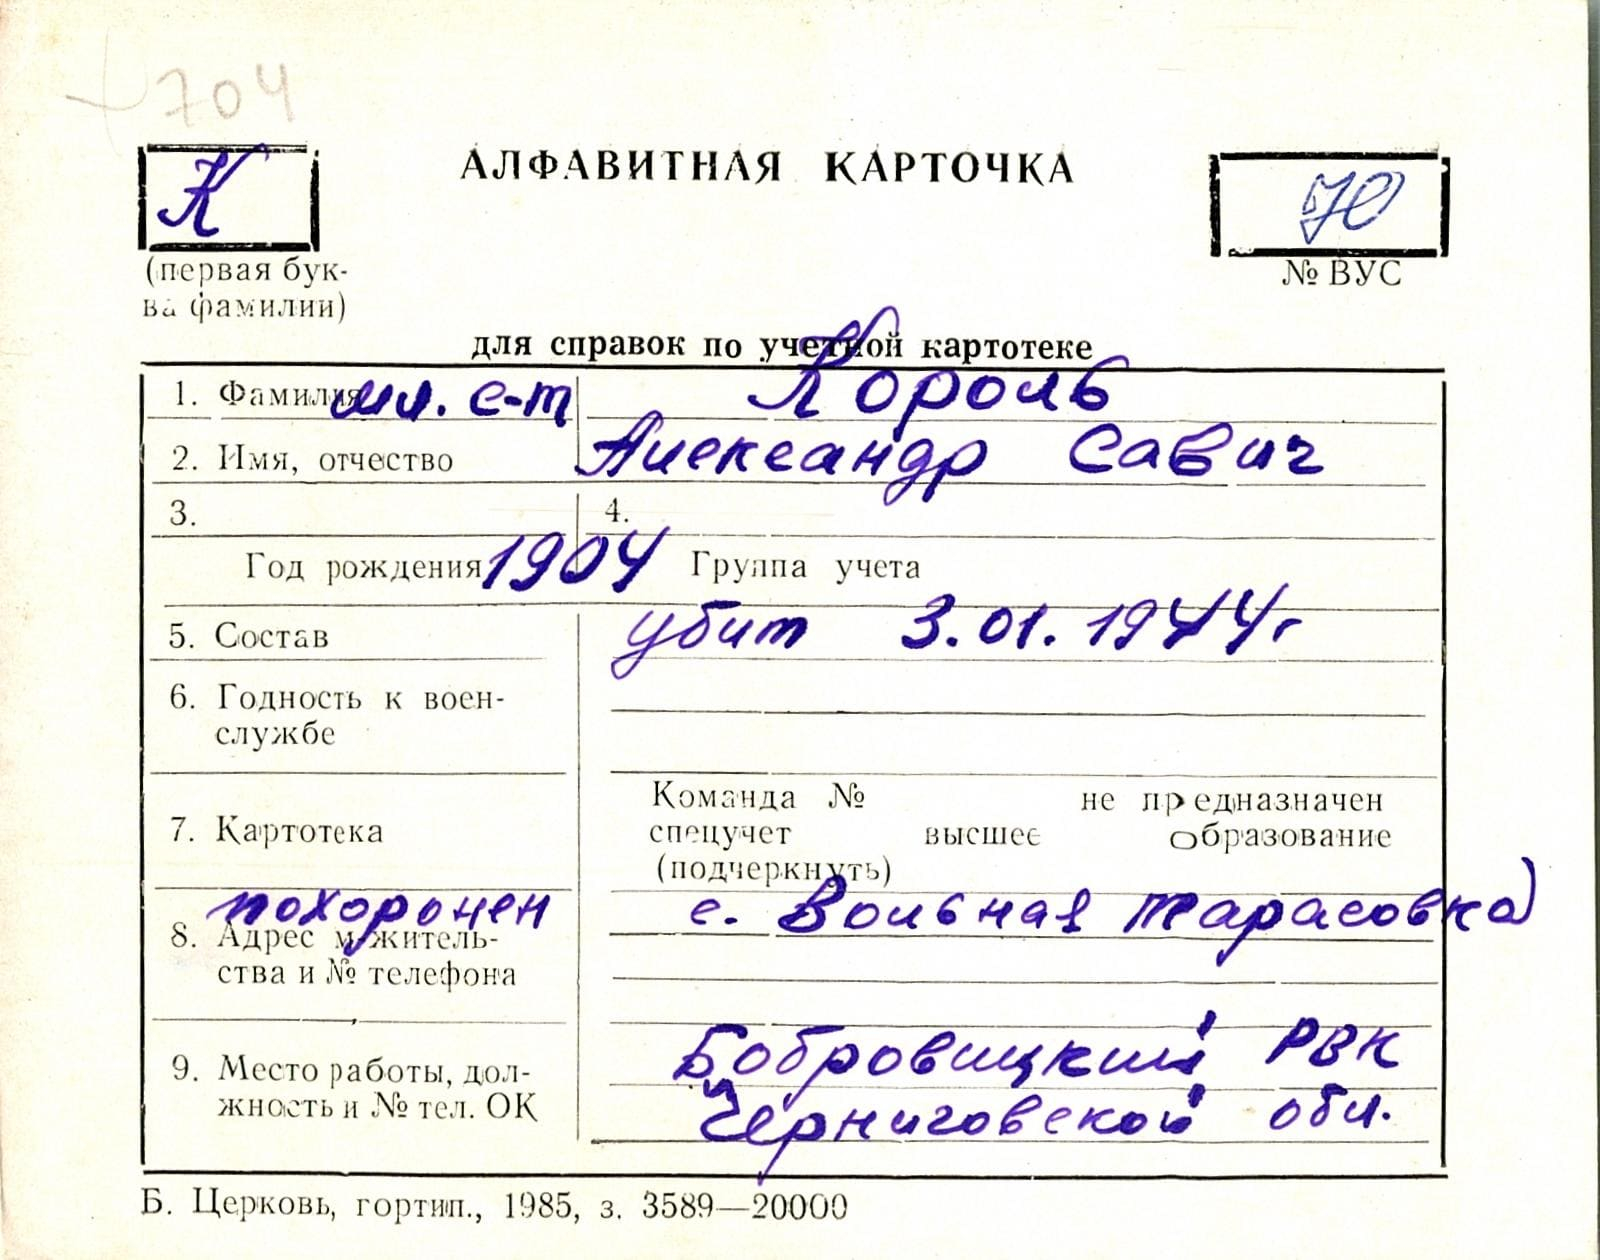 704
К
АЛФАВИТНАЯ КАРТОЧКА
70
(первая бук-
ва фамилии)
№ ВУС
для справок по учетной картотеке
1. Фамилия мл. с-т Король
2. Имя, отчество Александр Савич
3. 4.
Год рождения 1904 Группа учета
5. Состав убит 3.01.1944г
6. Годность к воен-
службе
7. Картотека
Команда № не предназначен
спецучет высшее образование
(подчеркнуть)
похоронен с. Вольная Тарасовка
8. Адрес м/житель-
ства и № телефона
9. Место работы, дол-
жность и № тел. ОК
Бобровицкий РВК
Черниговской обл.
Б. Церковь, гортип., 1985, з. 3589—20000